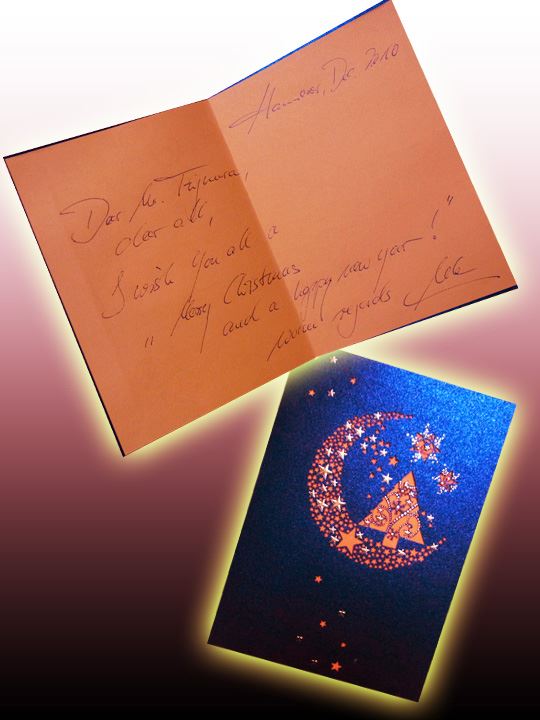 Hannover, Dec. 2010
Dear Mr. Fujimura,
dear all,
I wish you all a
"Merry Christmas
and a happy new year!"
warm regards